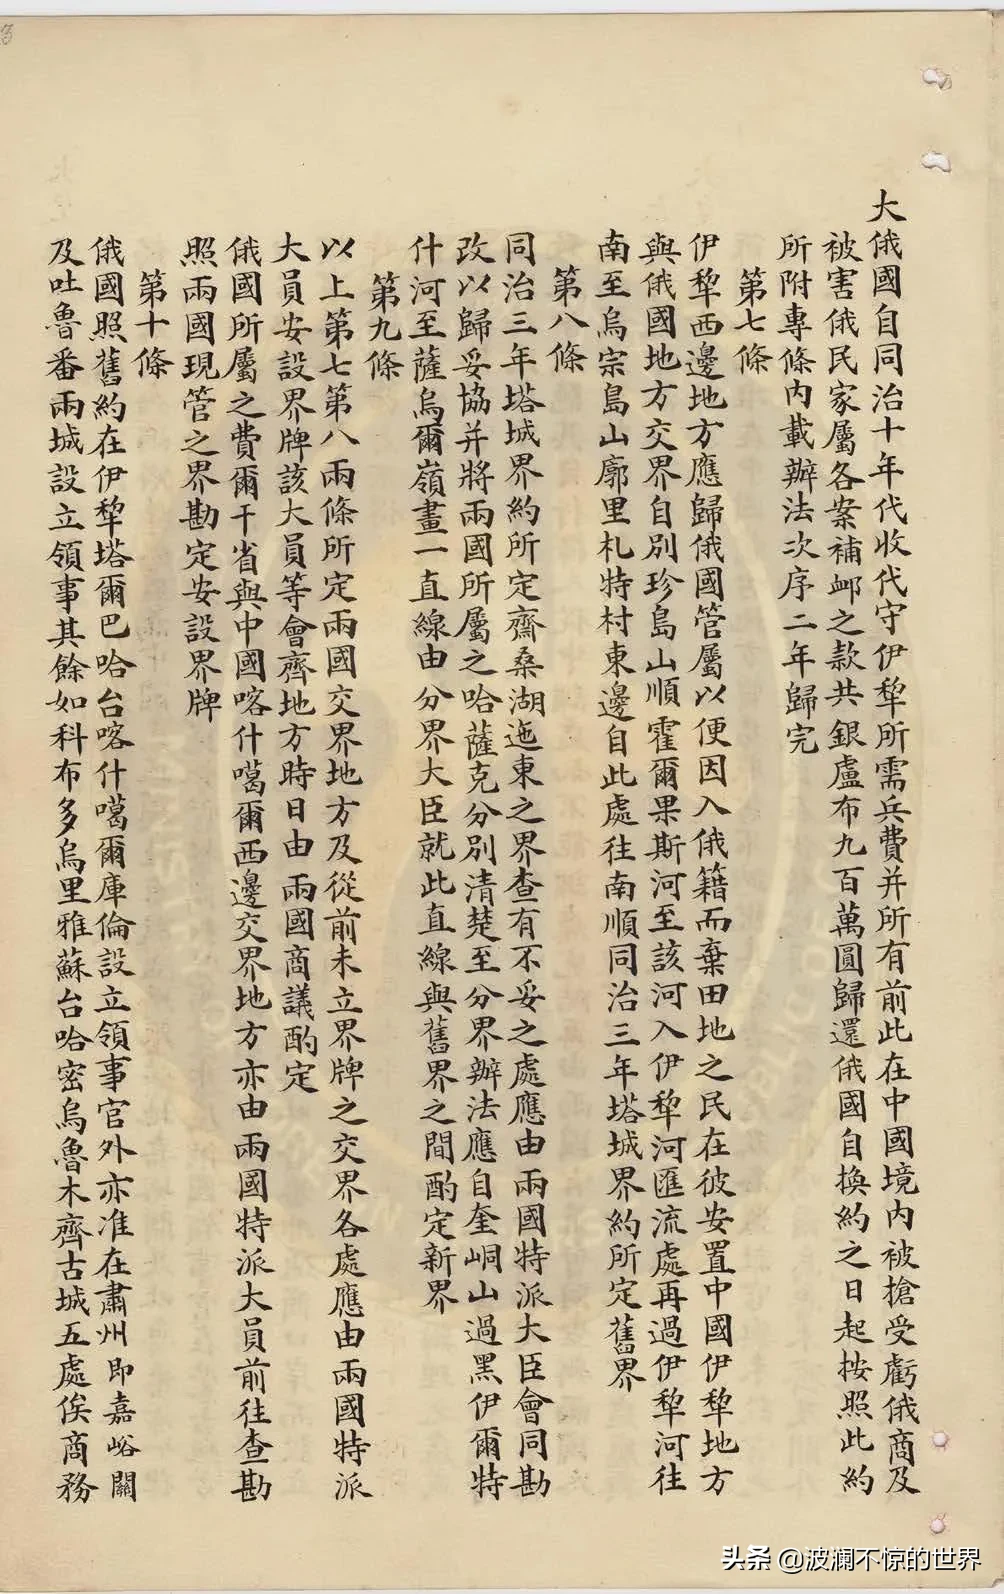 大俄國自同治十年代收代守伊犂所需兵費并所有前此在中國境內被搶受虧俄商及
被害俄民家屬各案補卹之款共銀盧布九百萬圓歸還俄國自換約之日起按照此約
所附專條內載辦法次序二年歸完
第七條
伊犂西邊地方應歸俄國管屬以便因入俄籍而棄田地之民在彼安置中國伊犂地方
與俄國地方交界自別珍島山順霍爾果斯河至該河入伊犂河匯流處再過伊犂河往
南至烏宗島山廓里札特村東邊自此處往南順同治三年塔城界約所定舊界
第八條
同治三年塔城界約所定齋桑湖迤東之界查有不妥之處應由兩國特派大臣會同勘
改以歸妥協并將兩國所屬之哈薩克分別清楚至分界辦法應自奎峒山過黑伊爾特
什河至薩烏爾嶺畫一直線由分界大臣就此直線與舊界之間酌定新界
第九條
以上第七第八兩條所定兩國交界地方及從前未立界牌之交界各處應由兩國特派
大員安設界牌該大員等會齊地方時日由兩國商議酌定
俄國所屬之費爾干省與中國喀什噶爾西邊交界地方亦由兩國特派大員前往查勘
照兩國現管之界勘定安設界牌
第十條
俄國照舊約在伊犂塔爾巴哈台喀什噶爾庫倫設立領事官外亦准在肅州即嘉峪關
及吐魯番兩城設立領事其餘如科布多烏里雅蘇台哈密烏魯木齊古城五處俟商務
头条 @波澜不惊的世界